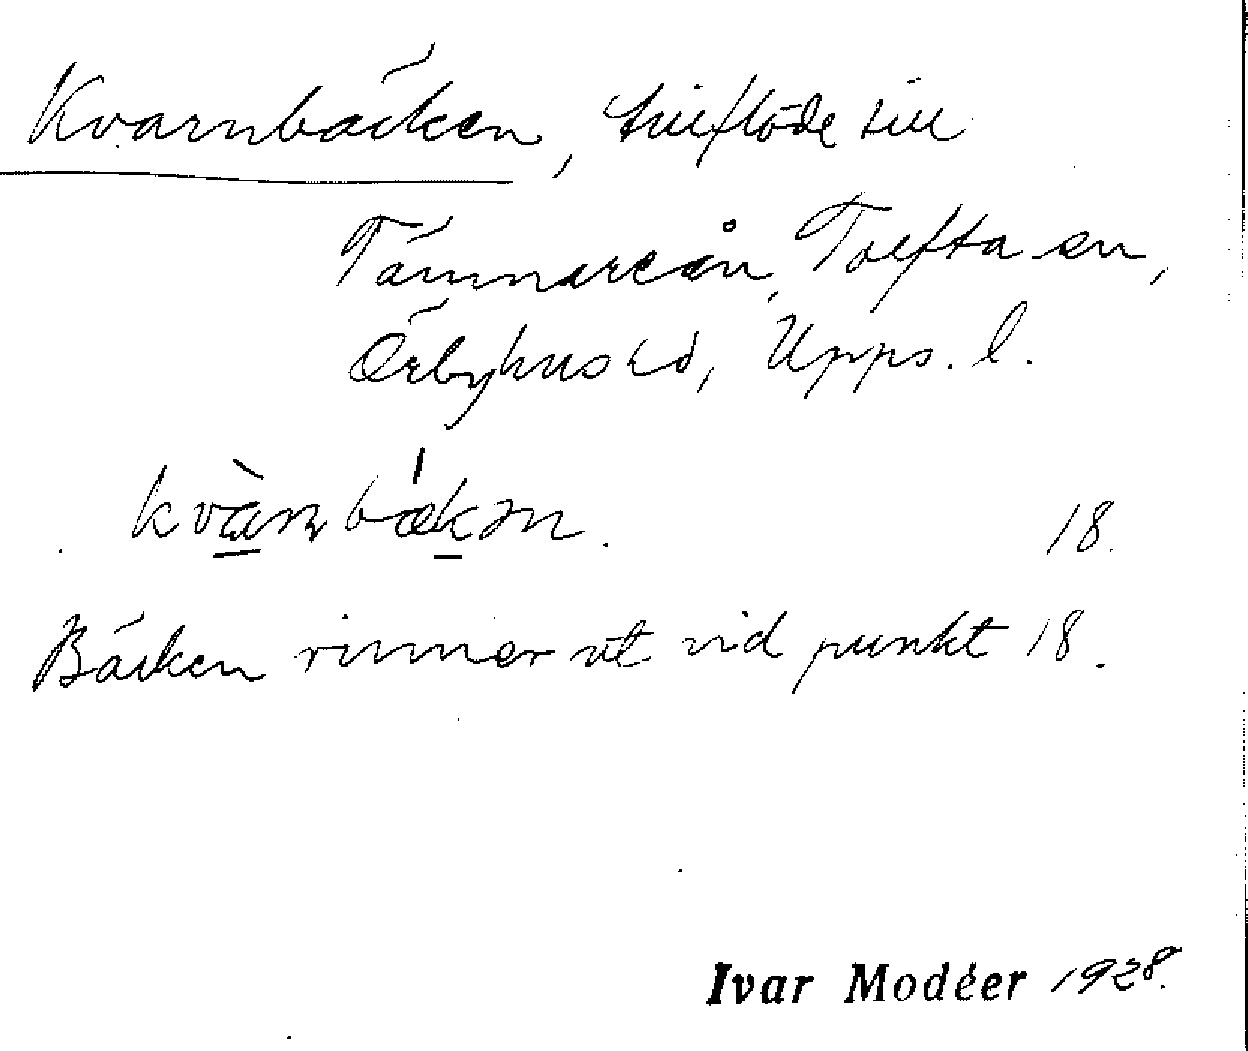 Kvarnbäcken, tillflöde till
Tämnareån, Tolfta sn,
Örbyhus hd, Upps. l.
kvànbækən. 18.
Bäcken rinner ut vid punkt 18.
Ivar Modéer 1928.